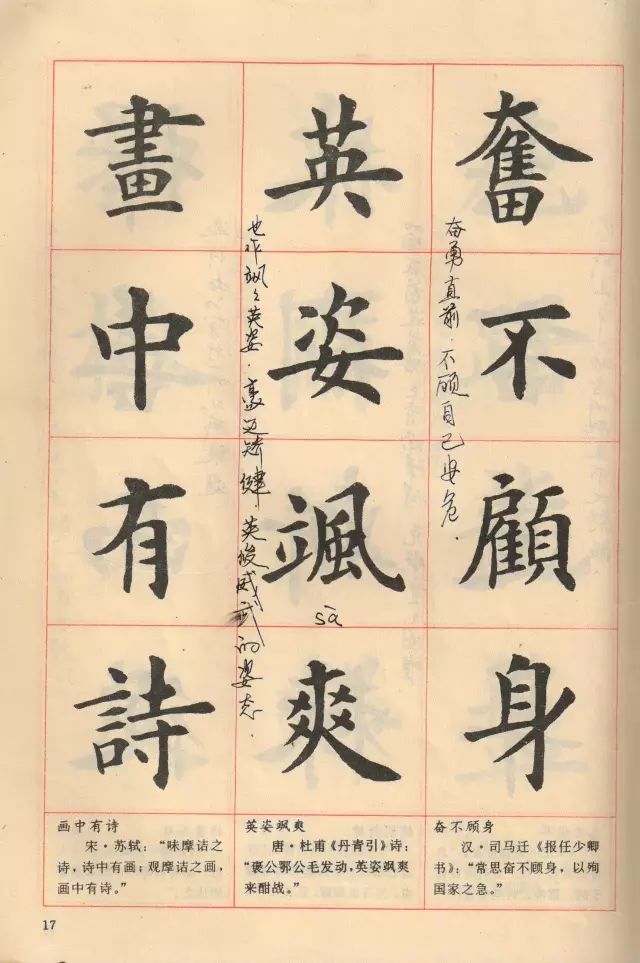 奮不顧身
奋勇直前·不顾自己安危·
英姿颯爽
sà
也作飒飒英姿·豪迈矫健 英俊威武的姿态·
畫中有詩
奋不顾身
汉·司马迁《报任少卿
书》：“常思奋不顾身，以殉
国家之急。”
英姿飒爽
唐·杜甫《丹青引》诗：
“褒公鄂公毛发动，英姿飒爽
来酣战。”
画中有诗
宋·苏轼：“味摩诘之
诗，诗中有画；观摩诘之画，
画中有诗。”
17